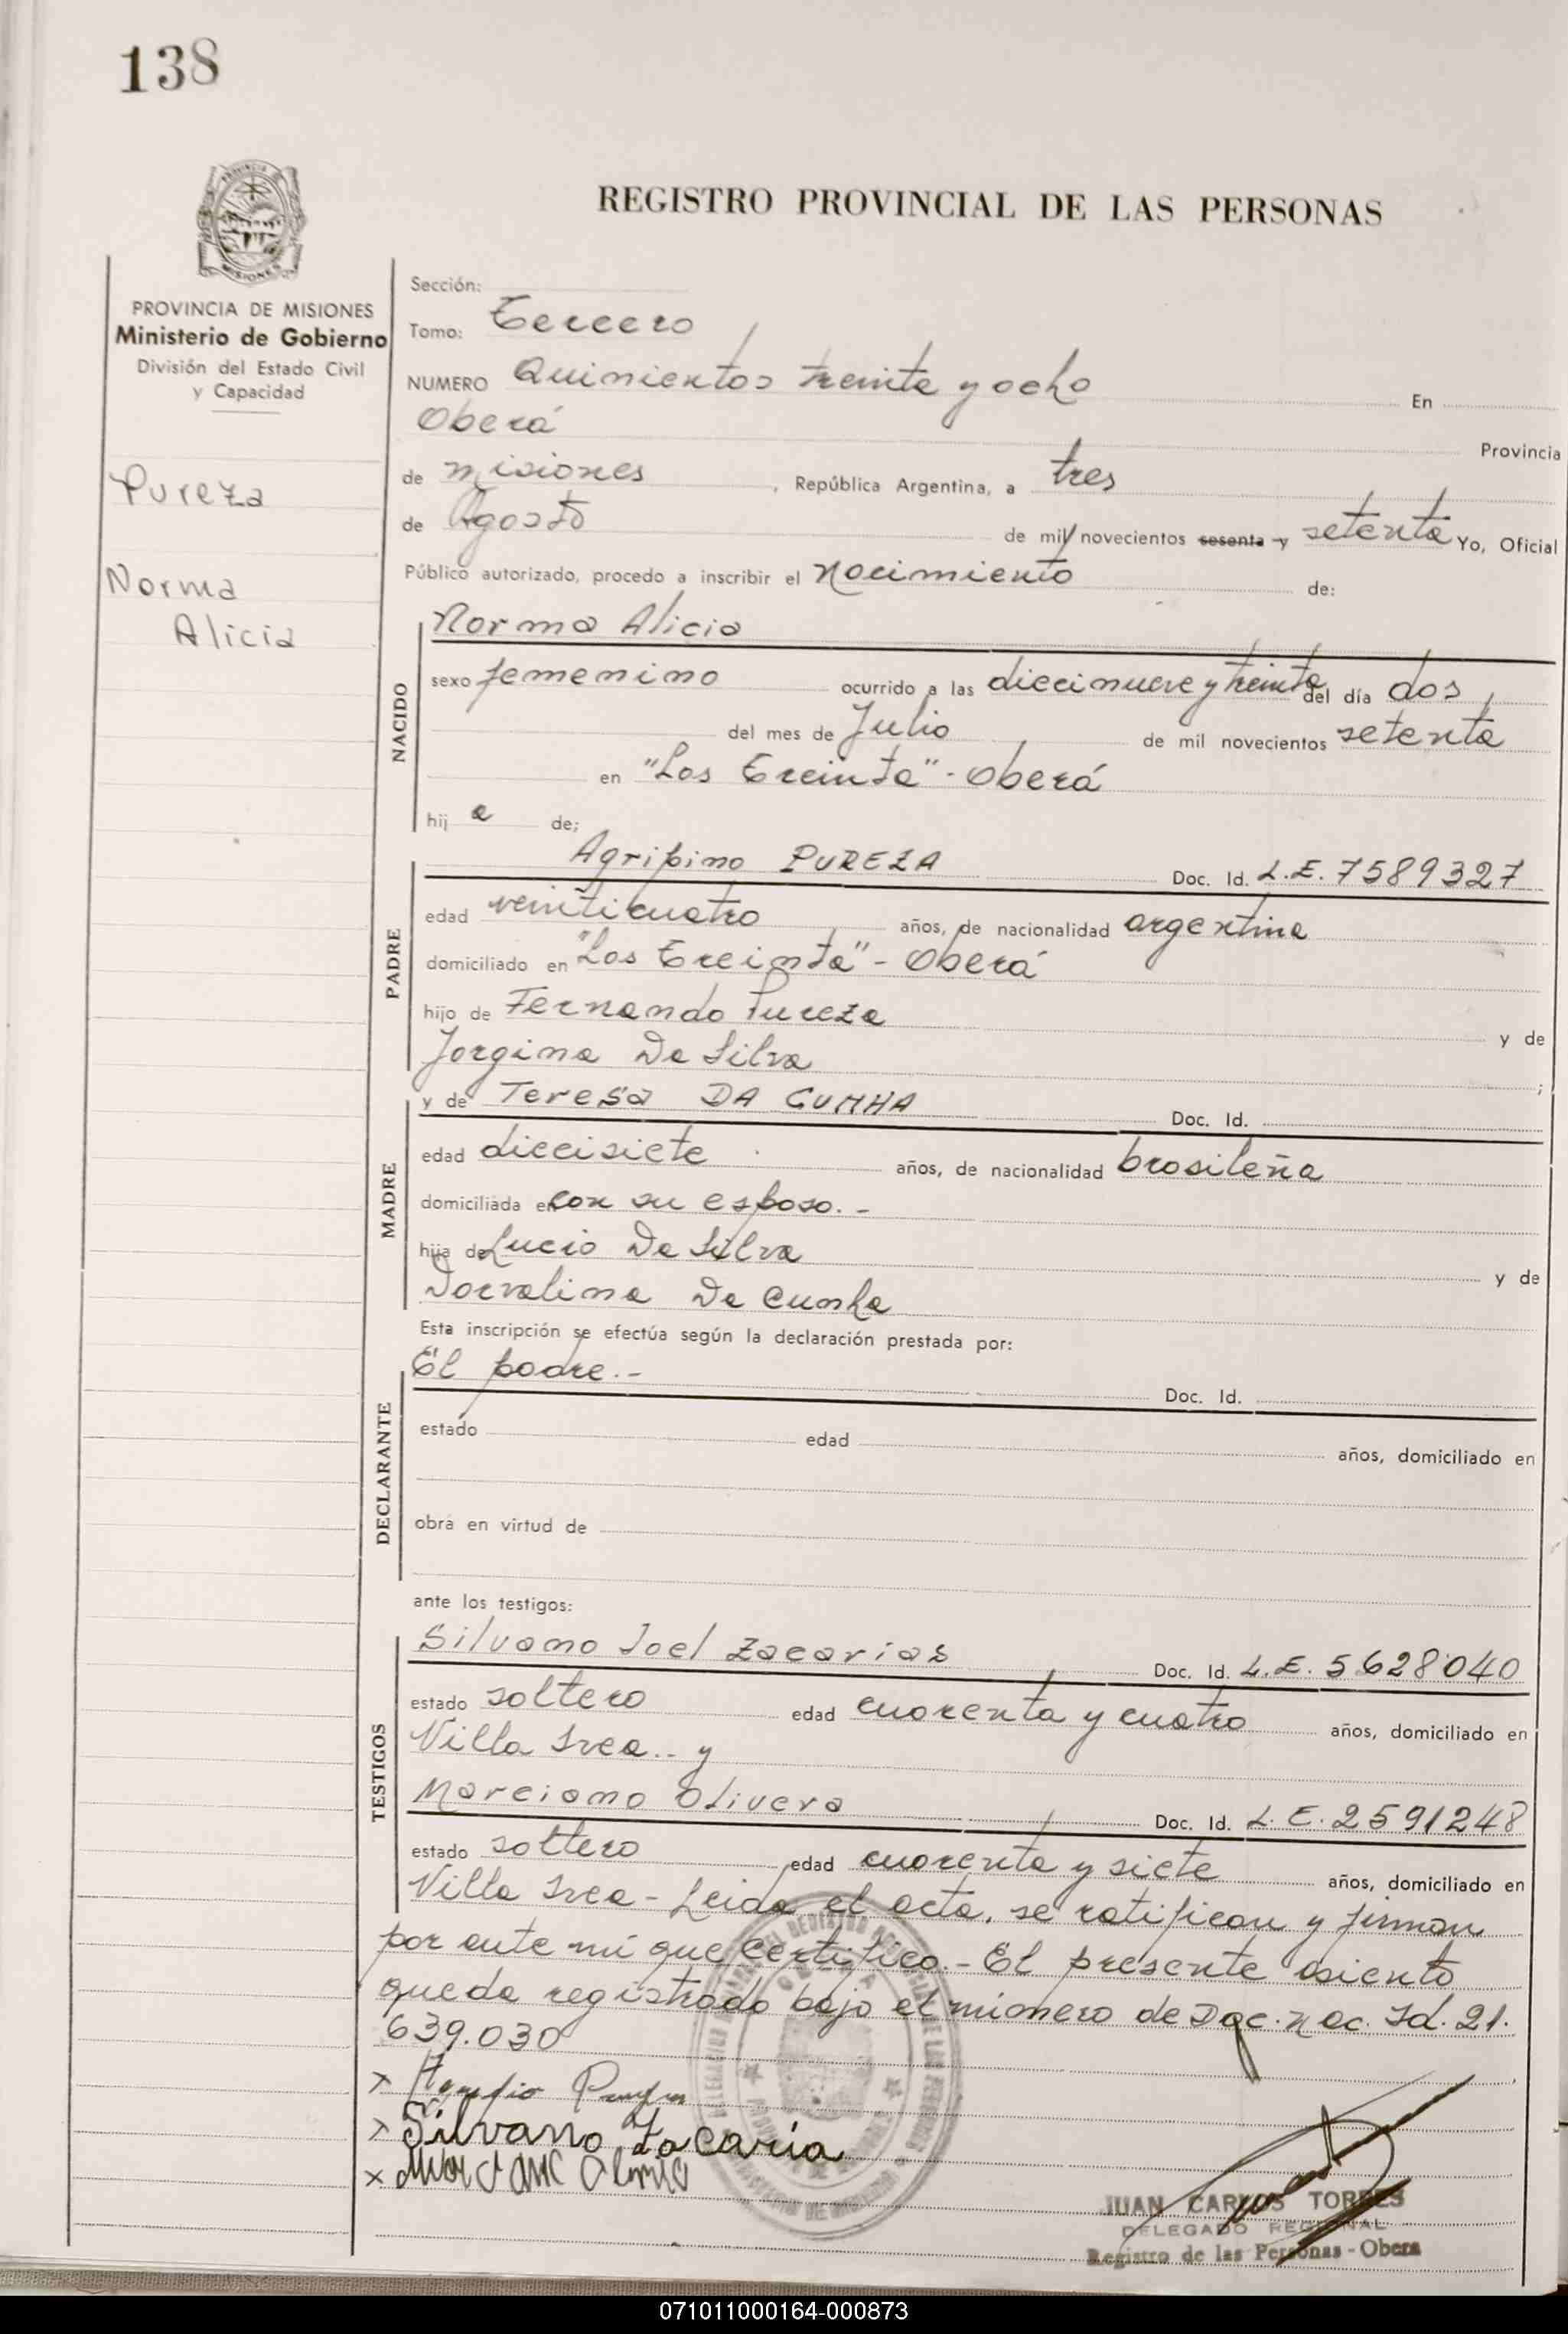 138
REGISTRO PROVINCIAL DE LAS PERSONAS
PROVINCIA DE MISIONES
Ministerio de Gobierno
División del Estado Civil
y Capacidad
Pureza
Norma
Alicia
Sección:
Tomo: Tercero
NUMERO Quinientos treinta y ocho En
Oberá Provincia
de Misiones, República Argentina, a tres
de Agosto de mil novecientos sesenta y setenta Yo, Oficial
Público autorizado, procedo a inscribir el nacimiento de:
NACIDO
Norma Alicia
sexo femenino ocurrido a las diecinueve y treinta del día dos
del mes de Julio de mil novecientos setenta
en "Los Treinta" - Oberá
hij a de:
PADRE
Agripino PUREZA Doc. Id. L.E. 7589327
edad veinticuatro años, de nacionalidad argentina
domiciliado en "Los Treinta" - Oberá
hijo de Fernando Pureza y de
Jorgina Da Silva ;
MADRE
y de Teresa DA CUNHA Doc. Id.
edad diecisiete años, de nacionalidad brasileña
domiciliada en con su esposo. -
hija de Lucio Da Silva y de
Dorvalina Da Cunha
Esta inscripción se efectúa según la declaración prestada por:
DECLARANTE
El padre. - Doc. Id.
estado edad años, domiciliado en
obra en virtud de
ante los testigos:
TESTIGOS
Silvano Joel Zacarias Doc. Id. L.E. 5628040
estado soltero edad cuarenta y cuatro años, domiciliado en
Villa Svea.. y
Marciano Olivera Doc. Id. L.E. 2591248
estado soltero edad cuarenta y siete años, domiciliado en
Villa Svea - Leida el acta, se ratifican y firman
por ante mí que certifico. - El presente asiento
queda registrado bajo el número de Doc. Nac. Id. 21.
639.030
x
x Silvano Zacaria
x
JUAN CARLOS TORRES
DELEGADO REGIONAL
Registro de las Personas - Obera
071011000164-000873